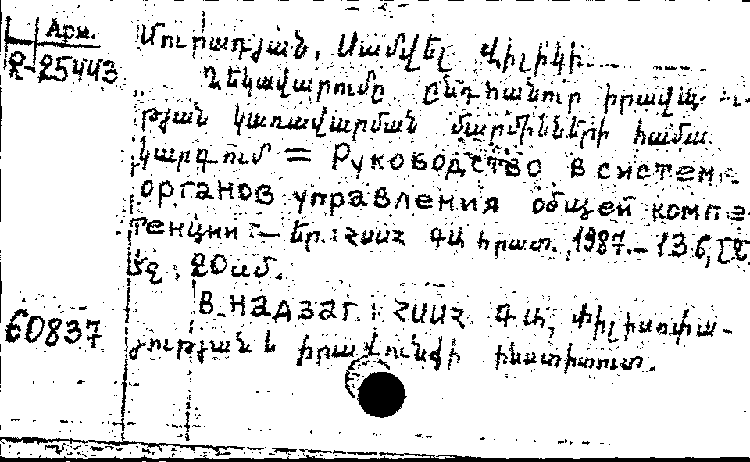 Арм.
Մուրադյան, Սամվել Փիլիկի
2-25443
Ղեկավարումը ընդհանուր իրավասու-
թյան կառավարման մարմինների համա
կարգում = Руководство в систем
органов управления общей компе
тенции. – Եր.: ՀՍՍՀ ԳԱ հրատ., 1987. – 136, [2]
էջ ; 20 սմ.
В надзаг.: ՀՍՍՀ ԳԱ, Փիլիսոփա-
60837
յության և իրավունքի ինստիտուտ.